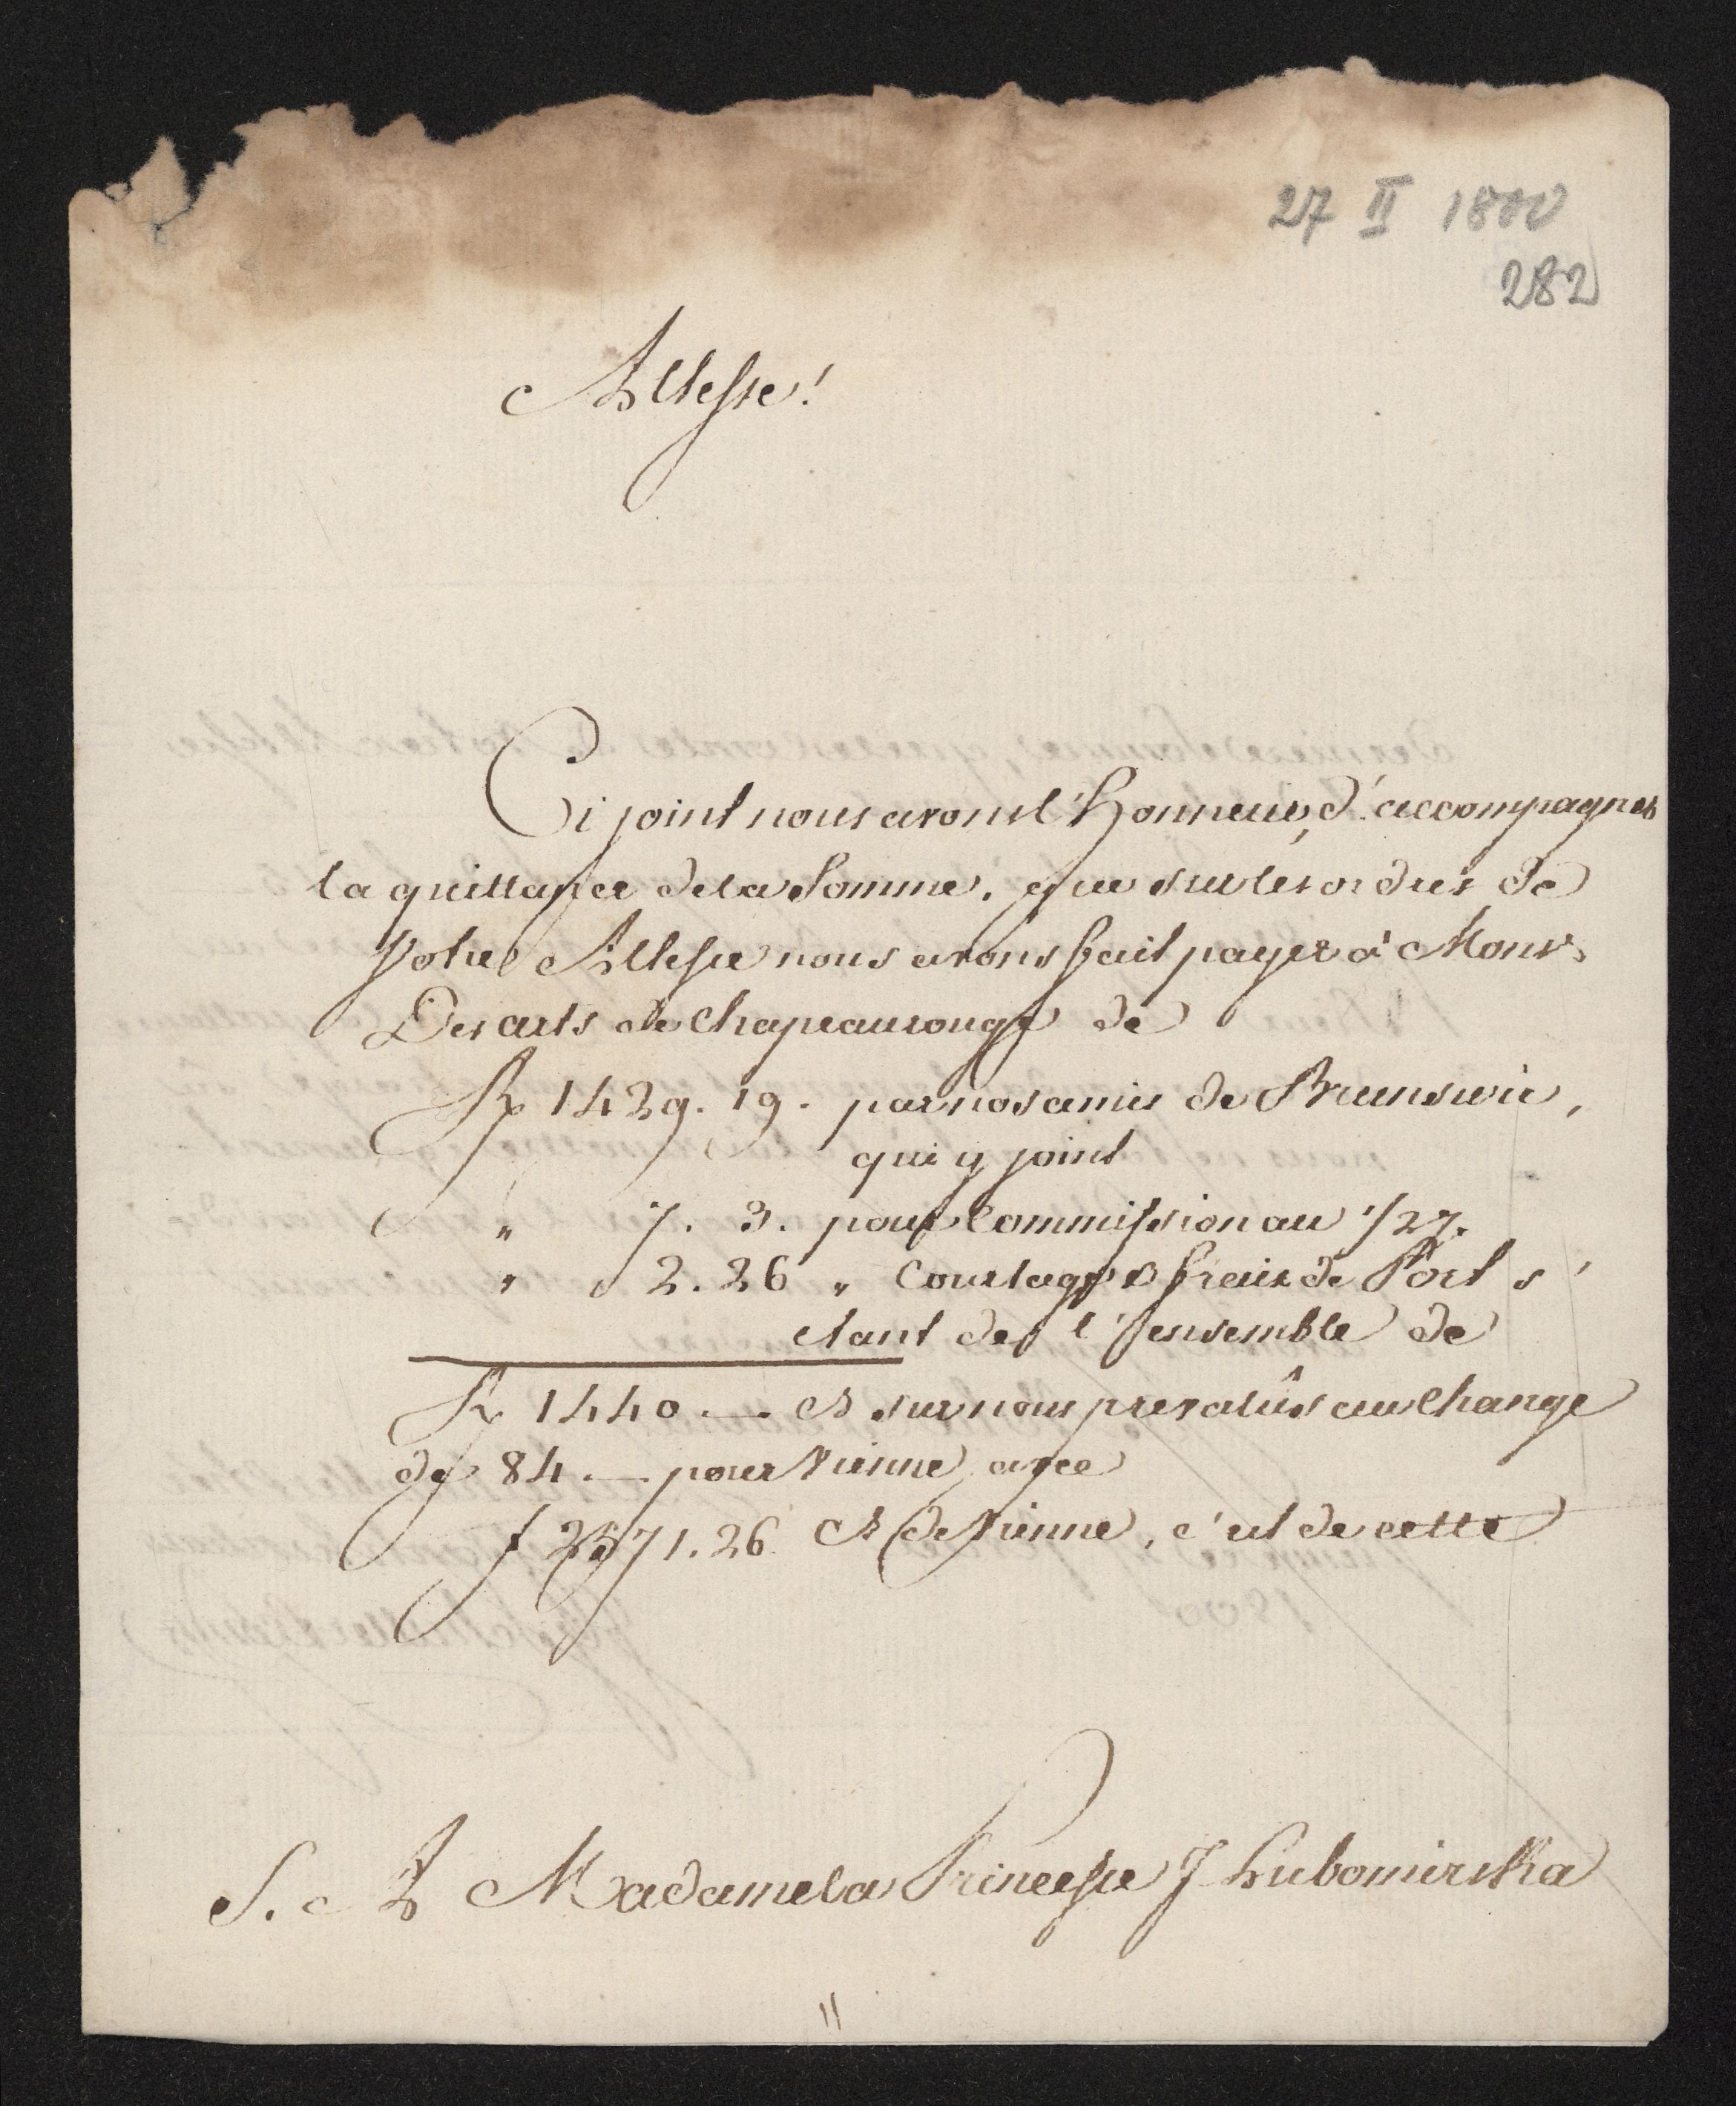 27 II 1800
282
Altesse!
Ci joint nous avons l'honneur, d'accompagner
la quittance de la Somme, que sur les ordres de
Votre Altesse nous avons fait payer à Monsr.
Des arts de Chapeaurouge de
Rx 1429. 19. par nos amis de Brunswic,
qui y joint
" 7. 3. pour Commission au 1/2 %.
" 2. 26 " Courtage & frais de Port s'
etant de l'ensemble de
Rx 1440 — & sur nous prevalûs au Change
de 84 — pour Vienne avec
f 2571. 26 & de Vienne, c'est de cette
S. A Madame la Princesse J Lubomirska
11